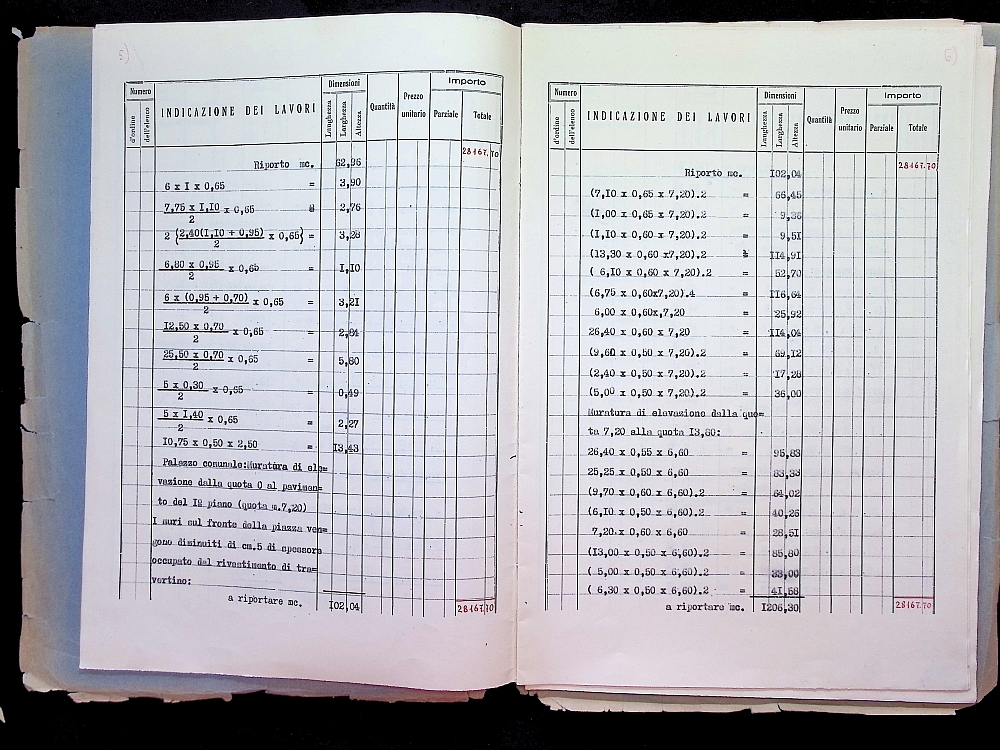 5)
Numero
d'ordine
dell'elenco
INDICAZIONE DEI LAVORI
Dimensioni
Lunghezza
Larghezza
Altezza
Quantità
Prezzo
unitario
Importo
Parziale
Totale
28167,70
Riporto mc. 62,96
6 x I x 0,65 = 3,90
7,75 x I,IO x 0,65 = 2,76
2
2 {2,40(I,IO + 0,95) x 0,65} = 3,28
2
6,80 x 0,95 x 0,65 = I,IO
2
6 x (0,95 + 0,70) x 0,65 = 3,2I
2
I2,50 x 0,70 x 0,65 = 2,84
2
25,50 x 0,70 x 0,65 = 5,80
2
5 x 0,30 x 0,65 = 0,49
2
5 x I,40 x 0,65 = 2,27
2
I0,75 x 0,50 x 2,50 = I3,43
Palazzo comunale:Muratura di ele=
vazione dalla quota O al pavimen=
to del I° piano (quota m.7,20)
I muri sul fronte della piazza ven=
gono diminuiti di cm.5 di spessore
occupato dal rivestimento di tra=
vertino:
a riportare mc. I02,04
28167.70
6)
Numero
d'ordine
dell'elenco
INDICAZIONE DEI LAVORI
Dimensioni
Lunghezza
Larghezza
Altezza
Quantità
Prezzo
unitario
Importo
Parziale
Totale
28167.70
Riporto mc. I02,04
(7,IO x 0,65 x 7,20).2 = 66,45
(I,00 x 0,65 x 7,20).2 = 9,36
(I,IO x 0,60 x 7,20).2 = 9,5I
(I3,30 x 0,60 x7,20).2 = II4,9I
( 6,IO x 0,60 x 7,20).2 = 52,70
(6,75 x 0,60x7,20).4 = II6,64
6,00 x 0,60x,7,20 = 25,92
26,40 x 0,60 x 7,20 = II4,04
(9,60 x 0,50 x 7,20).2 = 69,I2
(2,40 x 0,50 x 7,20).2 = I7,28
(5,00 x 0,50 x 7,20).2 = 36,00
Muratura di elevazione dalla quo=
ta 7,20 alla quota I3,80:
26,40 x 0,55 x 6,60 = 95,83
25,25 x 0,50 x 6,60 = 83,33
(9,70 x 0,50 x 6,60).2 = 64,02
(6,IO x 0,50 x 6,60).2 = 40,26
7,20.x 0,60 x 6,60 = 28,5I
(I3,00 x 0,50 x 6,60).2 = 85,80
( 5,00 x 0,50 x 6,60).2 = 33,00
( 6,30 x 0,50 x 6,60).2 = 4I,58
a riportare mc. I206,30
28167.70